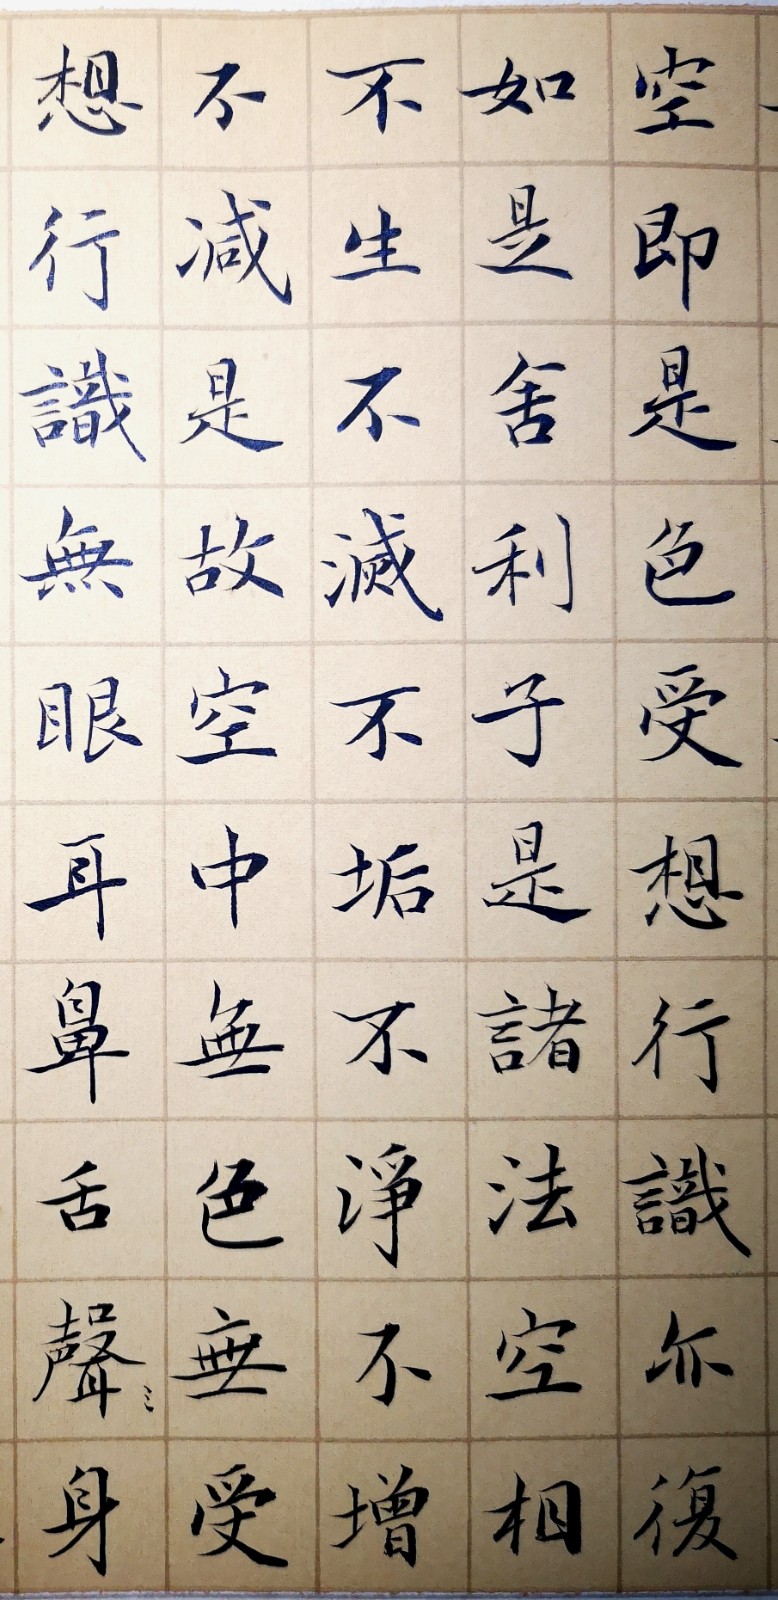 空即是色受想行識亦復
如是舍利子是諸法空相
不生不滅不垢不淨不增
不減是故空中無色無受
想行識無眼耳鼻舌聲身